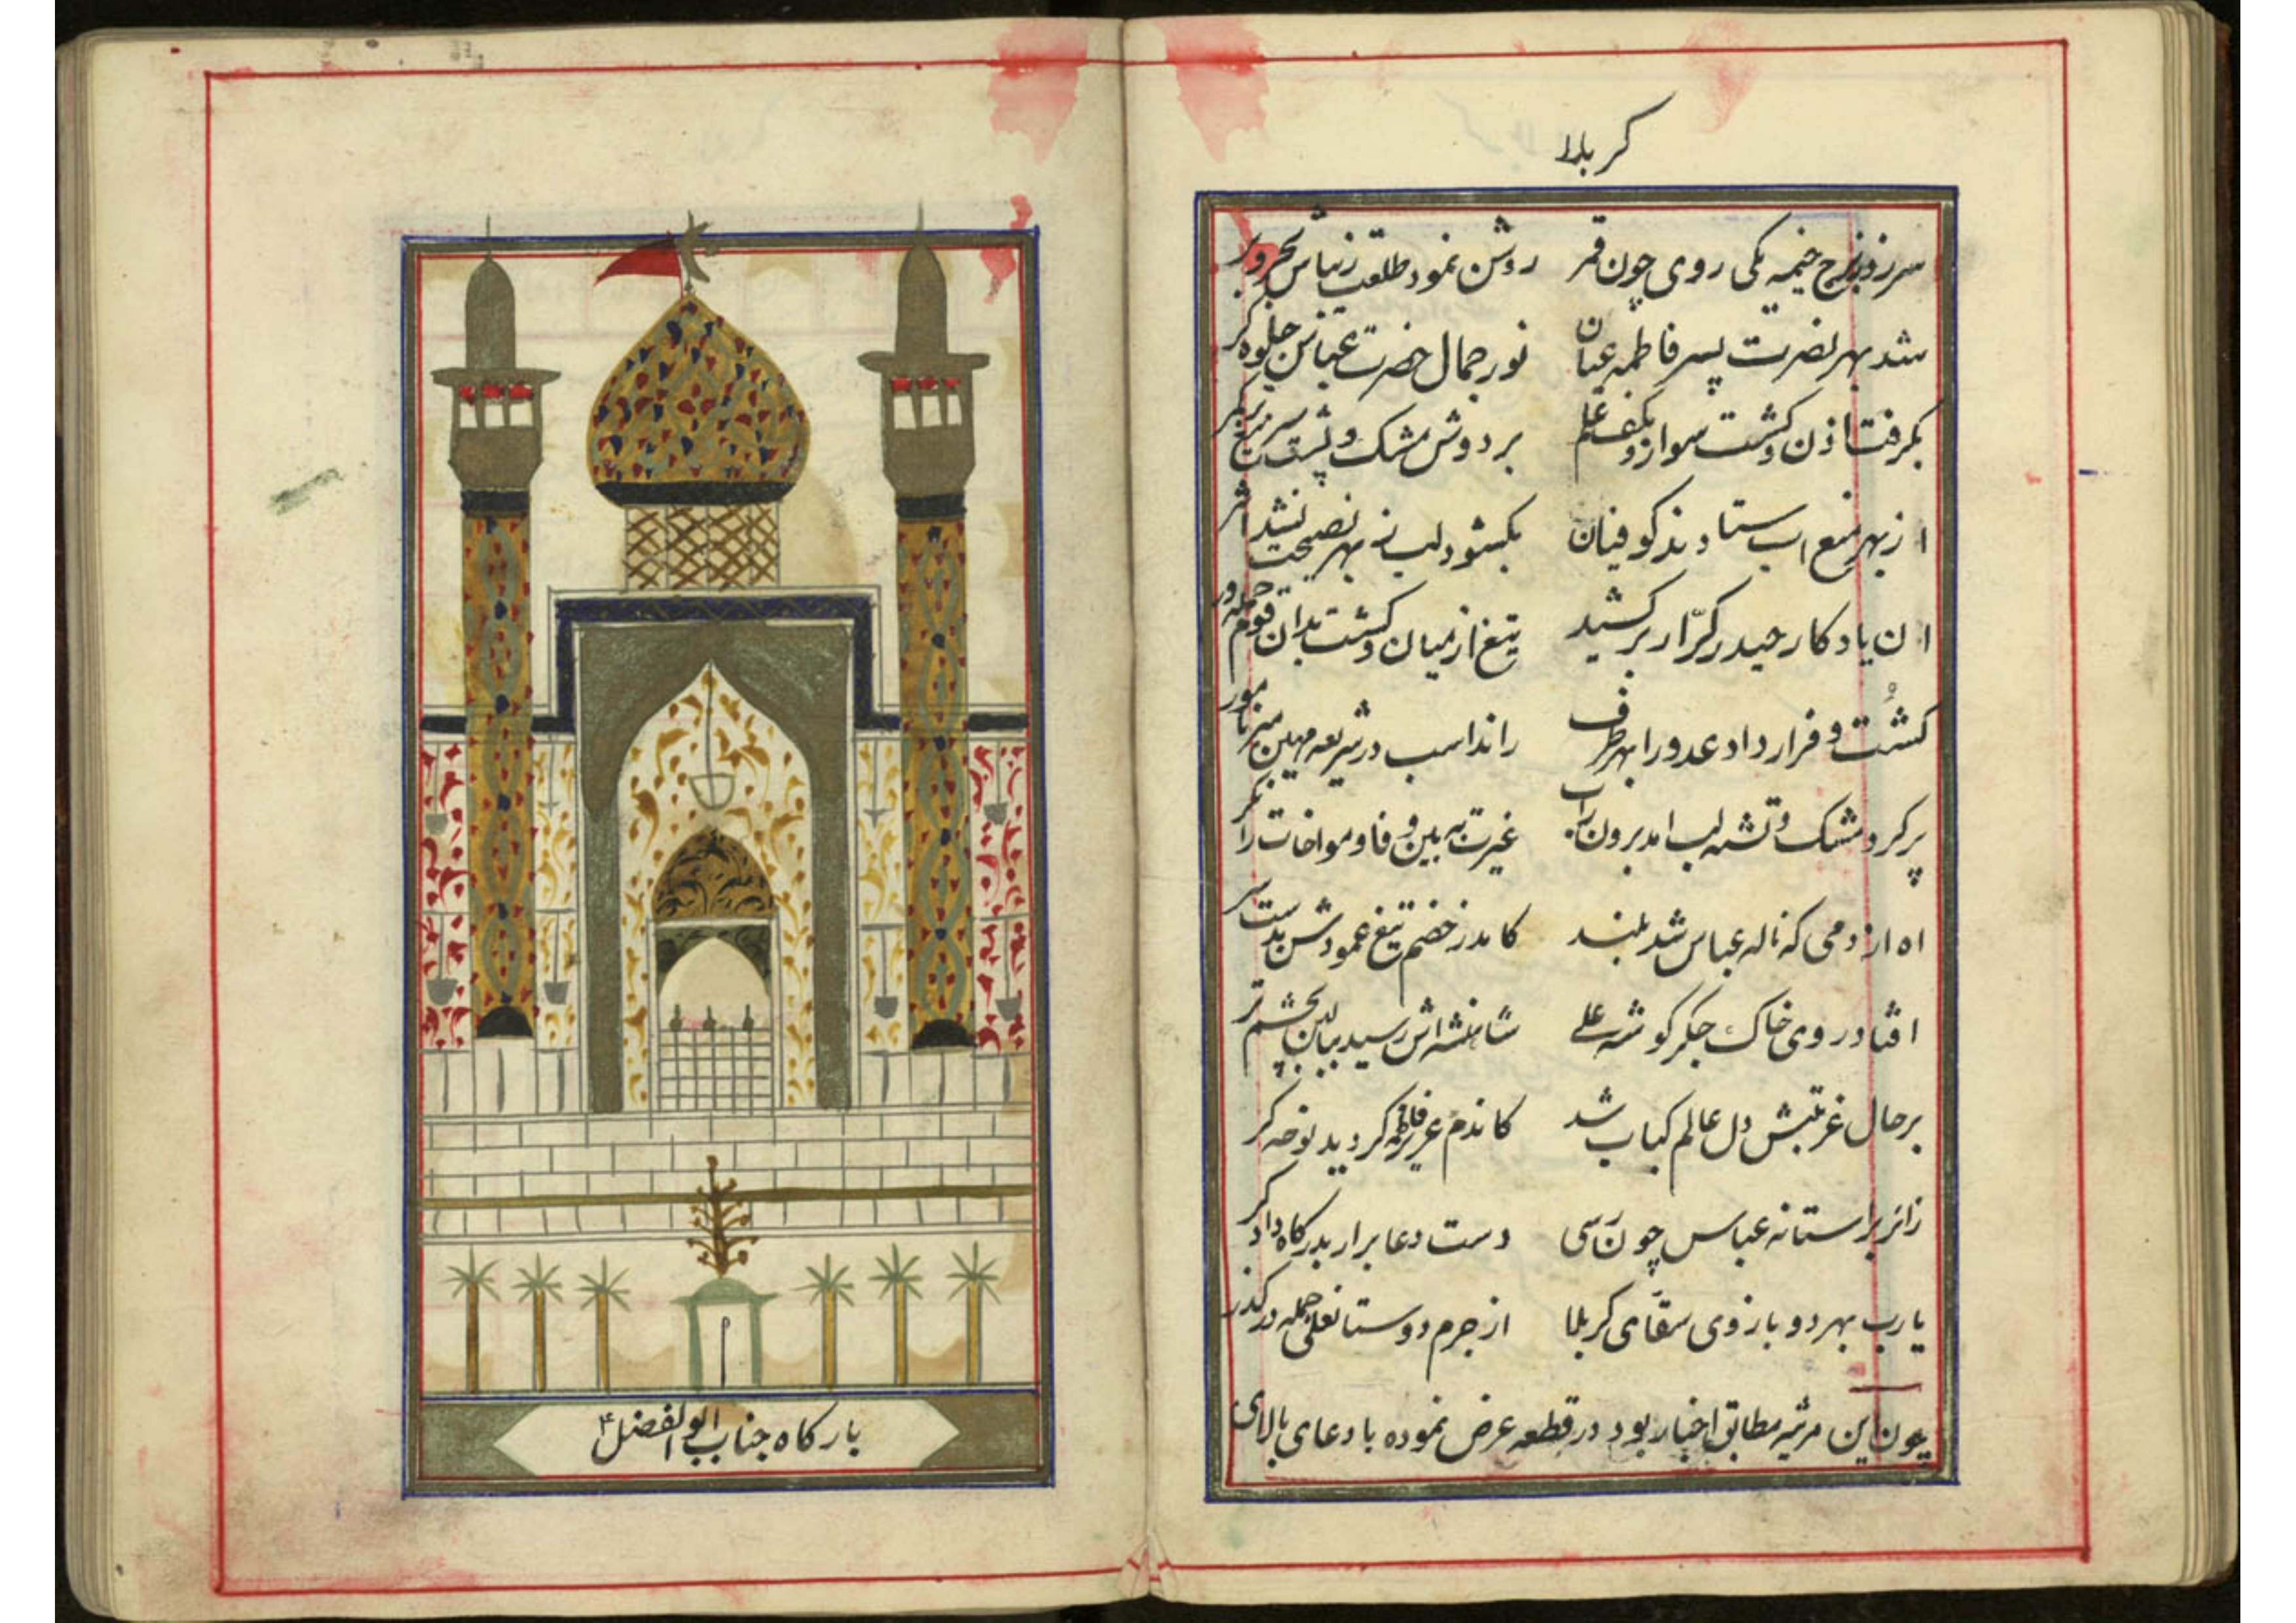 کربلا
سر زد ز برج خیمه یکی روی چون قمر روشن نمود طلعت زیباش بحر و بر
شد بهر نصرت پسر فاطمه عیان نور جمال حضرت عباس جلوه کر
بکرفت اذن و کشت سوار و بکف علم بر دوش مشک و پشت سر تیغ
از بهر منع اب ستادند کوفیان بکشود لب نه بهر نصیحت نشد اثر
ان یادکار حیدر کرّار برکشید تیغ از میان و کشت بدان قوم حمله ور
کشُت و فرار داد عدو را بهر طرف راند اسب در شریعه مهین میر نامور
پر کرد مشک و تشنه لب امد برون ز اب غیرت ببین و فا و مواخات را نکر
اه از دمی که ناله عباس شد بلند کامد ز خصم تیغ و عمودش بدست سر
افتاد روی خاک جکر کوشه علی شاهنشه اش رسید ببالین بچشم تر
بر حال غربتش دل عالم کباب شد کاندم عزیز فاطمه کردید نوحه کر
زائر بر استانه عباس چون رسی دست دعا برار بدرکاه دادکر
یا رب بهر دو بازوی سقّای کربلا از جرم دوستان علی جمله درکذر
چون این مرثیه مطابق اخبار بود در قطعه عرض نموده با دعای بالای
بارکاه جناب ابوالفضل ع